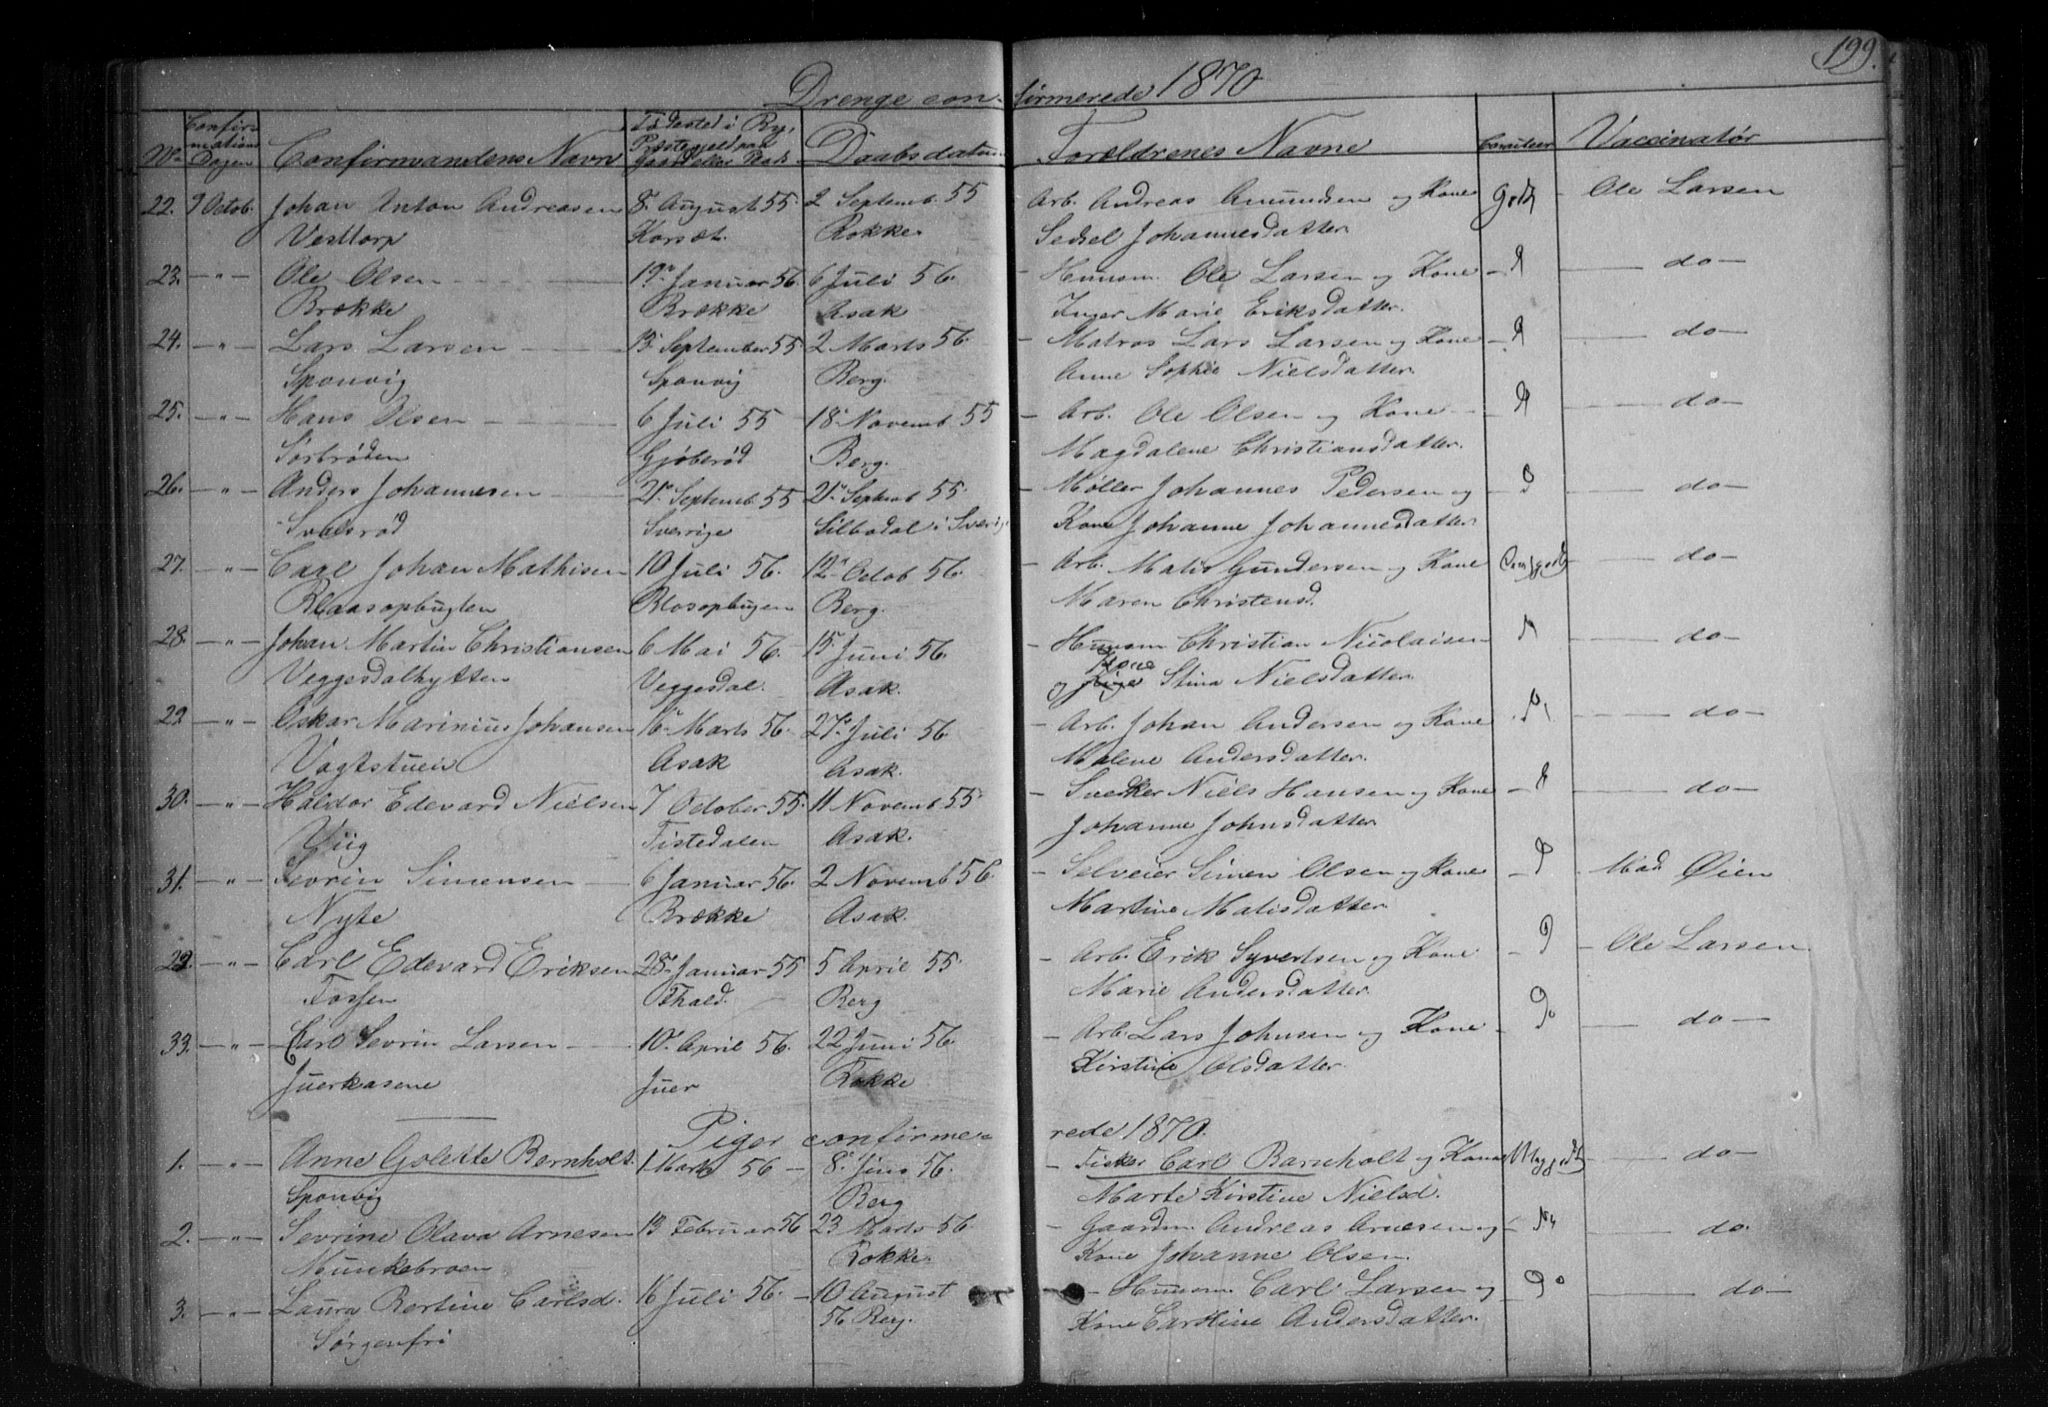 199.
Drenge confirmerede 1870
No Confirmations Dagen Confirmandens Navn Fødested i By, Præstegjeld paa Gaard eller Plads Daabsdatum Forældrenes Navne Vaccinatør
22. 9 Octob. Johan Anton Andreasen 8 August 55 2 Septemb. 55 Arb. Andreas Amundsen og Kone Godt Ole Larsen
Vesttorp Korsæt. Rokke Sedsel Johannesdatter
23. — " — Ole Olsen 19 Januar 56. 6 Juli 56. Huusm. Ole Larsen og Kone do
Brække Brække Asak Inger Marie Eriksdatter.
24. — " — Lars Larsen 15 September 55 2 Marts 56. Matros Lars Larsen og Kone do
Sponvig Sponvig Berg. Anne Sophie Nielsdatter
25. — " — Hans Olsen 6 Juli 55 18 Novemb 55 Arb. Ole Olsen og Kone do
Sørbrøden Gjøberød Berg. Magdalene Christiansdatter.
26. — " — Anders Johannesen 21 Septemb 55 21 Septemb 55. Møller Johannes Pedersen og do
Svalsrød Sverrige Silbodal i Sverig Kone Johanne Johannesdatter
27. — " — Carl Johan Mathisen 10 Juli 56. 12 Octob 56. Arb. Matis Gundersen og Kone do
Blaasopbugten Blosopbugen Berg. Maren Christensd.
28. — " — Johan Martin Christiansen 6 Mai 56. 15 Juni 56. Huusm Christian Nicolaisen do
Veggesdalhytten Veggesdal. Asak. og Kone Stina Nielsdatter
29 — " — Oskar Marinius Johansen 16 Marts 56. 27 Juli 56. Arb. Johan Andersen og Kone do
Vagtstuein Asak Asak. Malene Andersdatter.
30. — " — Haldor Edevard Nielsen 7 October 55. 11 Novemb 55 Snedker Niels Hansen og Kone do
Viig Tistedalen Asak. Johanne Johnsdatter
31. — " — Sevrin Simensen 6 Januar 56. 2 Novemb 56. Selveier Simen Olsen og Kone Mad Øien
Nyte Brække Asak. Martine Matisdatter
— " — Carl Edevard Eriksen 28 Januar 55 5 April 55. Arb. Erik Syvertsen og Kone Ole Larsen
Fossen Fhald. Berg Marie Andersdatter.
33. — " — Carl Sevrin Larsen 10 April 56. 22 Juni 56. Arb. Lars Johnsen og Kone do
Juerkasene Juer Rokke Kirstine Olsdatter.
Piger confirmerede 1870.
1. — " — Anne Golette Bernholt. 1 Marts 56 8 Juni 56. Fisker Carl Barnholt og Kone Meg godt do
Sponvig Berg Marte Kirstine Nielsd.
2. — " — Sevrine Olava Arnesen 13 Februar 56 23 Marts 56. Gaardm. Andreas Arnesen og do.
Munkebroen Rokke. Kone Johanne Olsen.
3. — " — Laura Bertine Carlsd. 16 Juli 56. 10 August Huusm Carl Larsen og do
Sørgenfri 56 Berg. Kone Caroline Andersdatter.